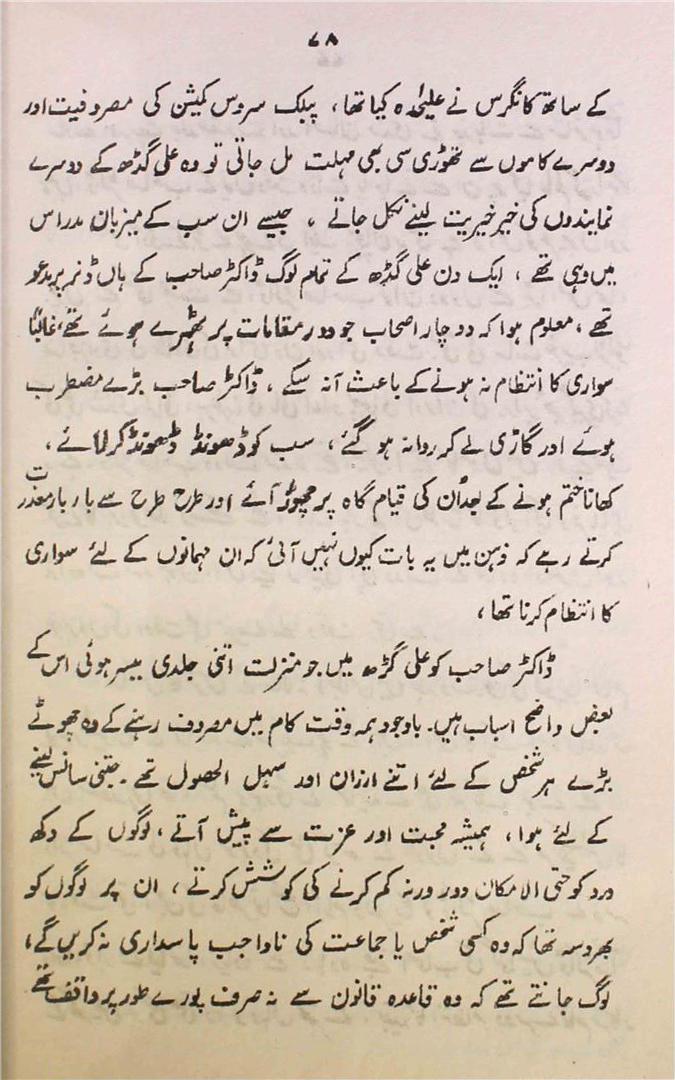 ۷۸
کے ساتھ کانگرس نے علیحدہ کیا تھا، پبلک سروس کمیشن کی مصروفیت اور
دوسرے کاموں سے تھوڑی سی بھی مہلت مل جاتی تو وہ علی گڈھ کے دوسرے
نمایندوں کی خیر خیریت لینے نکل جاتے، جیسے ان سب کے میزبان مدراس
میں وہی تھے، ایک دن علی گڈھ کے تمام لوگ ڈاکٹر صاحب کے ہاں ڈنر پر مدعو
تھے، معلوم ہوا کہ دو چار اصحاب جو دور مقامات پر ٹھہرے ہوئے تھے، غالباً
سواری کا انتظام نہ ہونے کے باعث آ نہ سکے، ڈاکٹر صاحب بڑے مضطرب
ہوئے اور گاڑی لے کر روانہ ہو گئے، سب کو ڈھونڈ ڈھونڈ کر لائے،
کھانا ختم ہونے کے بعد اُن کی قیام گاہ پر چھوڑ آئے اور طرح طرح سے بار بار معذرت
کرتے رہے کہ ذہن میں یہ بات کیوں نہیں آئی کہ ان مہمانوں کے لئے سواری
کا انتظام کرنا تھا،
ڈاکٹر صاحب کو علی گڑھ میں جو منزلت اتنی جلدی میسر ہوئی اس کے
بعض واضح اسباب ہیں۔ باوجود ہمہ وقت کام میں مصروف رہنے کے وہ چھوٹے
بڑے ہر شخص کے لئے اتنے ارزان اور سہل الحصول تھے۔ جتنی سانس لینے
کے لئے ہوا، ہمیشہ محبت اور عزت سے پیش آتے، لوگوں کے دکھ
درد کو حتی الامکان دور ورنہ کم کرنے کی کوشش کرتے، ان پر لوگوں کو
بھروسہ تھا کہ وہ کسی شخص یا جماعت کی ناواجب پاسداری نہ کریں گے،
لوگ جانتے تھے کہ وہ قاعدہ قانون سے نہ صرف پورے طور پر واقف تھے